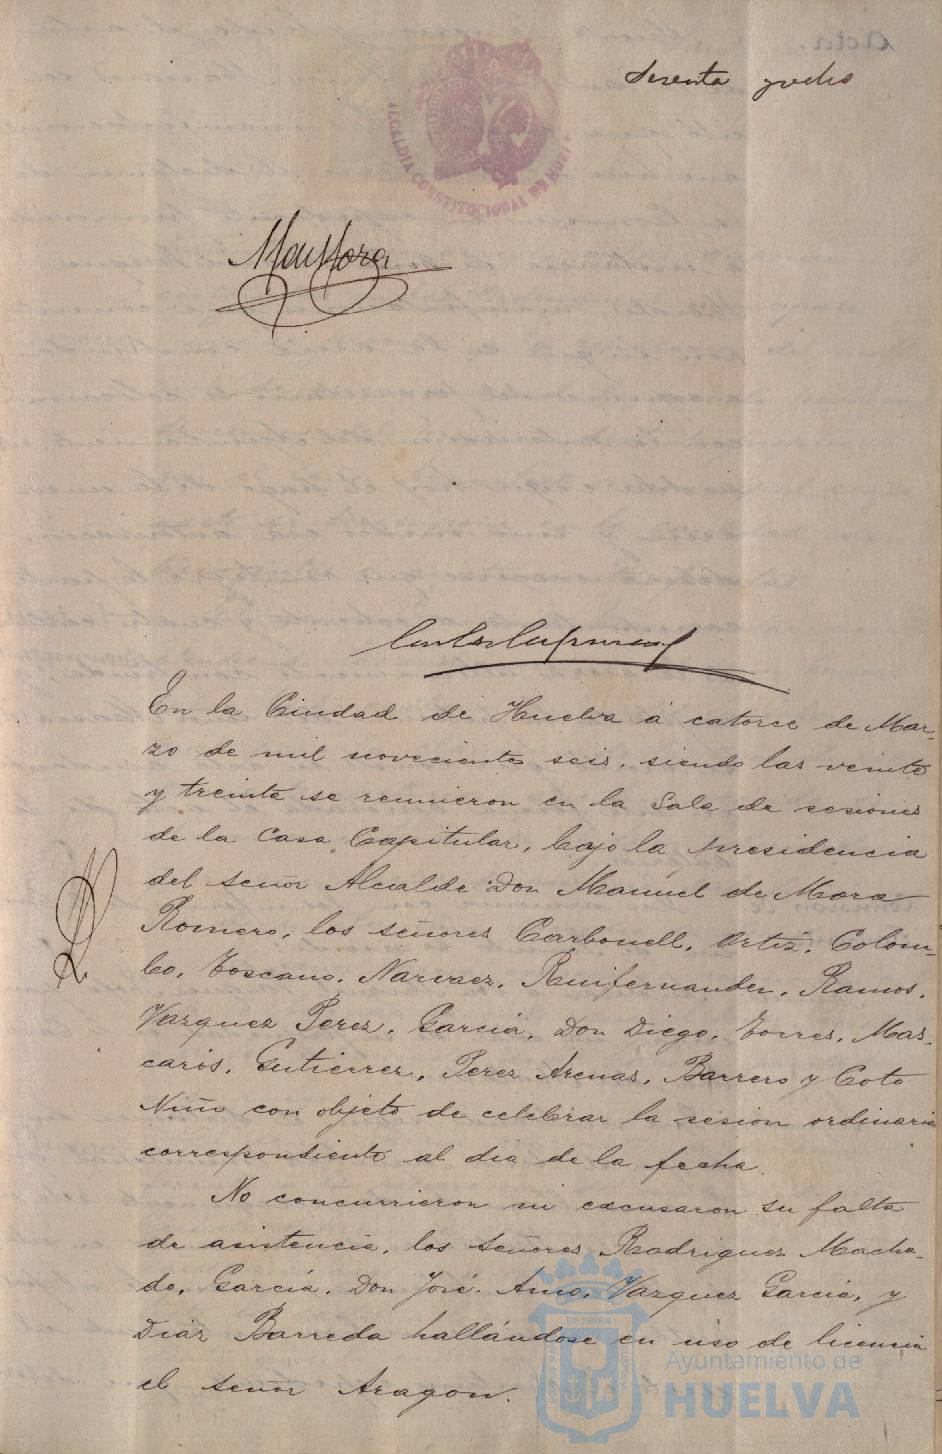 Acta.
Sesenta y ocho
ALCALDIA CONSTITUCIONAL DE HUELVA
En la Ciudad de Huelva á catorce de Mar-
zo de mil novecientos seis, siendo las veinte
y treinta se reunieron en la Sala de sesiones
de la Casa Capitular, bajo la presidencia
del señor Alcalde Don Manuel de Mora
Romero, los señores Carbonell, Ortiz, Colom-
bo, Toscano, Narvaez, Ruifernandez, Ramos,
Vazquez Perez, García, Don Diego, Torres, Mas-
carós, Gutierrez, Perez Arenas, Barrero y Coto
Niño con objeto de celebrar la sesion ordinaria
correspondiente al dia de la fecha.
No concurrieron ni excusaron su falta
de asistencia, los señores Rodriguez Macha-
do, García, Don José, Amo, Vazquez García, y
Diaz Barreda hallándose en uso de licencia
el señor Aragon.
Ayuntamiento de
HUELVA